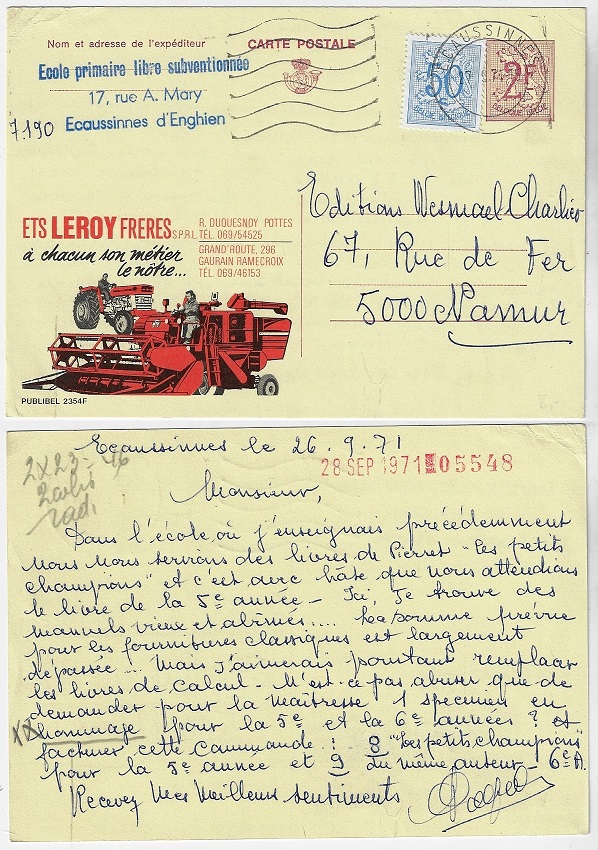 Nom et adresse de l'expéditeur
CARTE POSTALE
Ecole primaire libre subventionnée
17, rue A. Mary
7190 Ecaussinnes d'Enghien
50
2F
BELGIQUE-BELGIE
ECAUSSINNES
ETS LEROY FRERES S.P.R.L.
à chacun son métier
le nôtre...
R. DUQUESNOY POTTES
TÉL. 069/54525
GRAND'ROUTE, 296
GAURAIN RAMECROIX
TÉL 069/46153
PUBLIBEL 2354F
Editions Wesmael Charlier
67, Rue de Fer
5000 Namur
8.-
Ecaussinnes le 26.9.71
28 SEP 1971 05548
2x23 = 46
Monsieur,
Dans l'école où j'enseignais précédemment
nous nous servions des livres de Pierret "Les petits
champions" et c'est avec hâte que nous attendions
le livre de la 5e année - Ici, je trouve des
manuels vieux et abîmés.... La somme prévue
pour les fournitures classiques est largement
dépassée... Mais j'aimerais pourtant remplacer
les livres de calcul - N'est-ce pas abuser que de
demander pour la maîtresse 1 specimen en
hommage pour la 5e et la 6e années ? et
facturer cette commande : 8 "Les petits champions"
pour la 5e année et 9 du même auteur - 6e A.
Recevez mes meilleurs sentiments